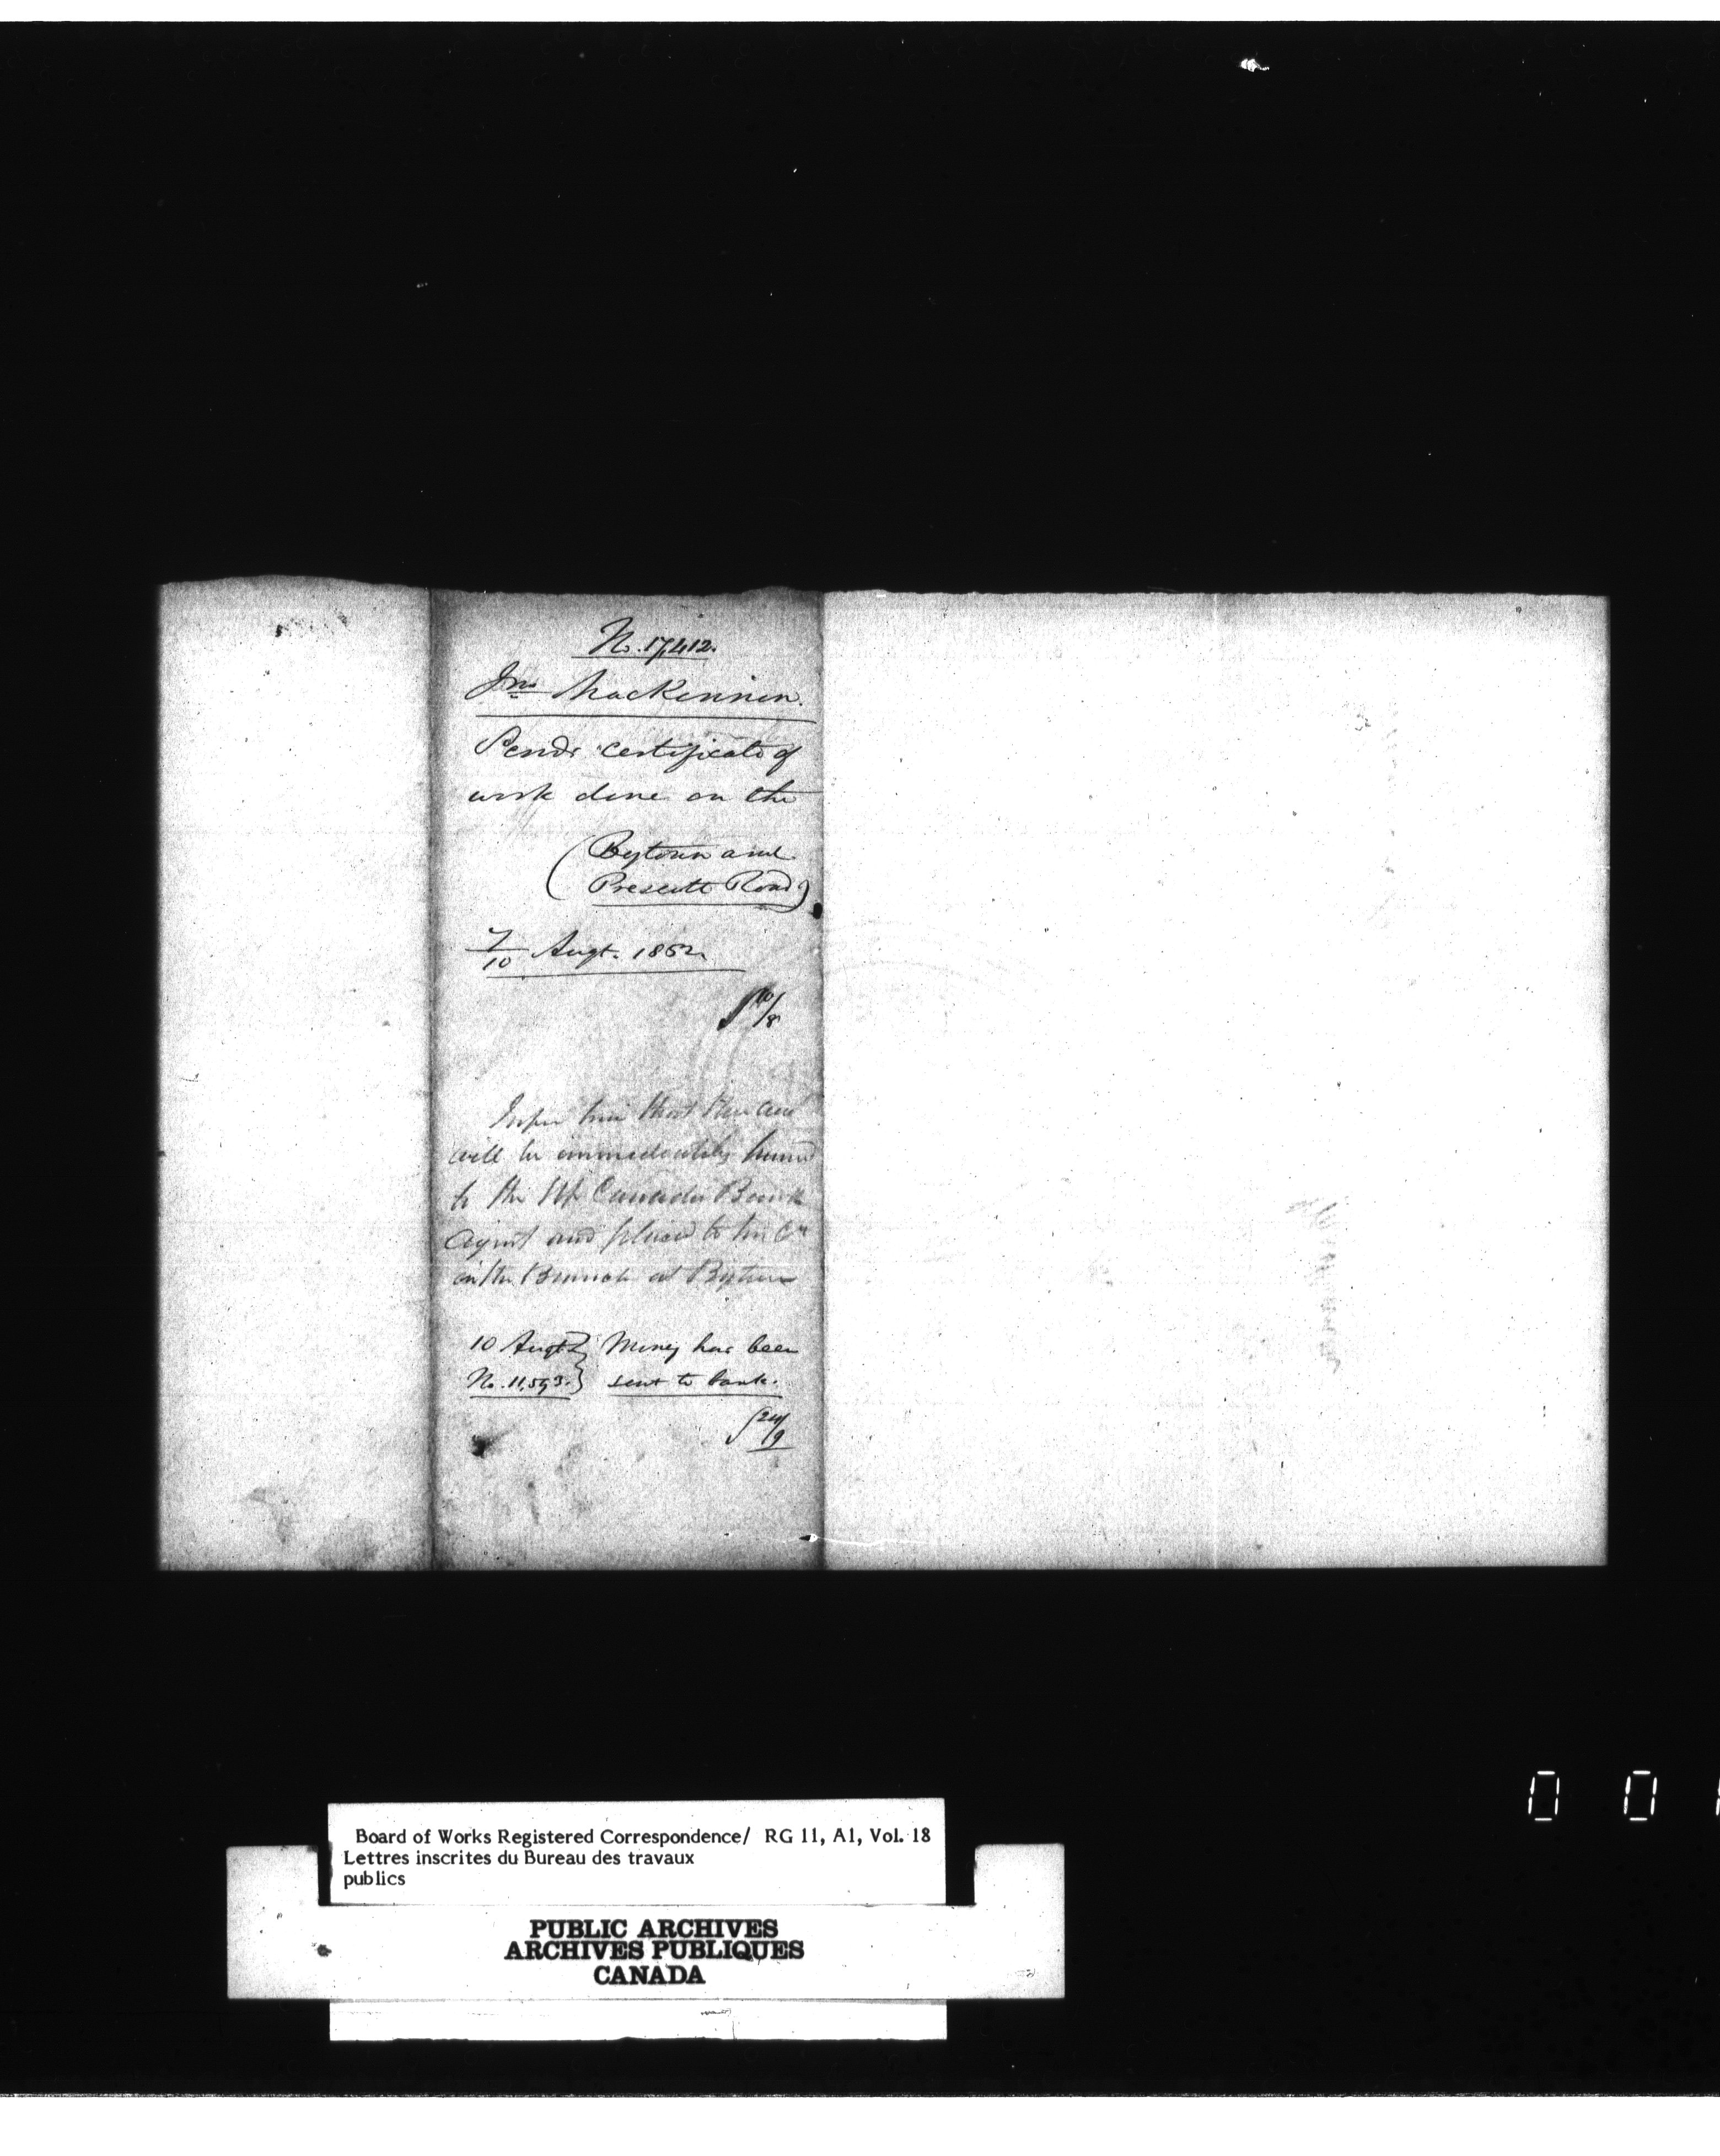 No. 17,412.
Jno. MacKinnon.
Sends certificate of
work done on the
(Bytown and
Prescott Road)
7/10 Augt. 1852
10/8
him that the
will be immediately
to the Up Canada Bank
Agent and placed to his Cr
in the Branch at Bytown
10 Augt } Money has been
No. 11,593. } sent to bank.
24/9
Board of Works Registered Correspondence/ RG 11, A1, Vol. 18
Lettres inscrites du Bureau des travaux
publics
PUBLIC ARCHIVES
ARCHIVES PUBLIQUES
CANADA
0 0